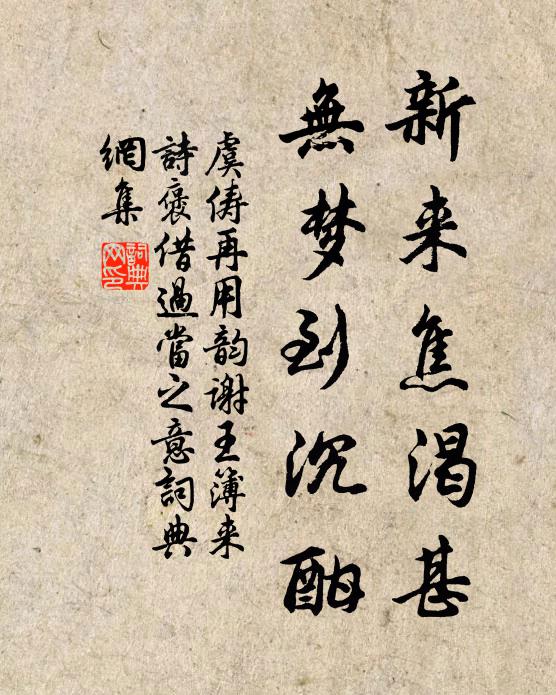 新来焦渴甚
無梦到沉酣
虞俦再用韵谢王簿来
詩褒借過當之意詞典
網集
詞典
网印